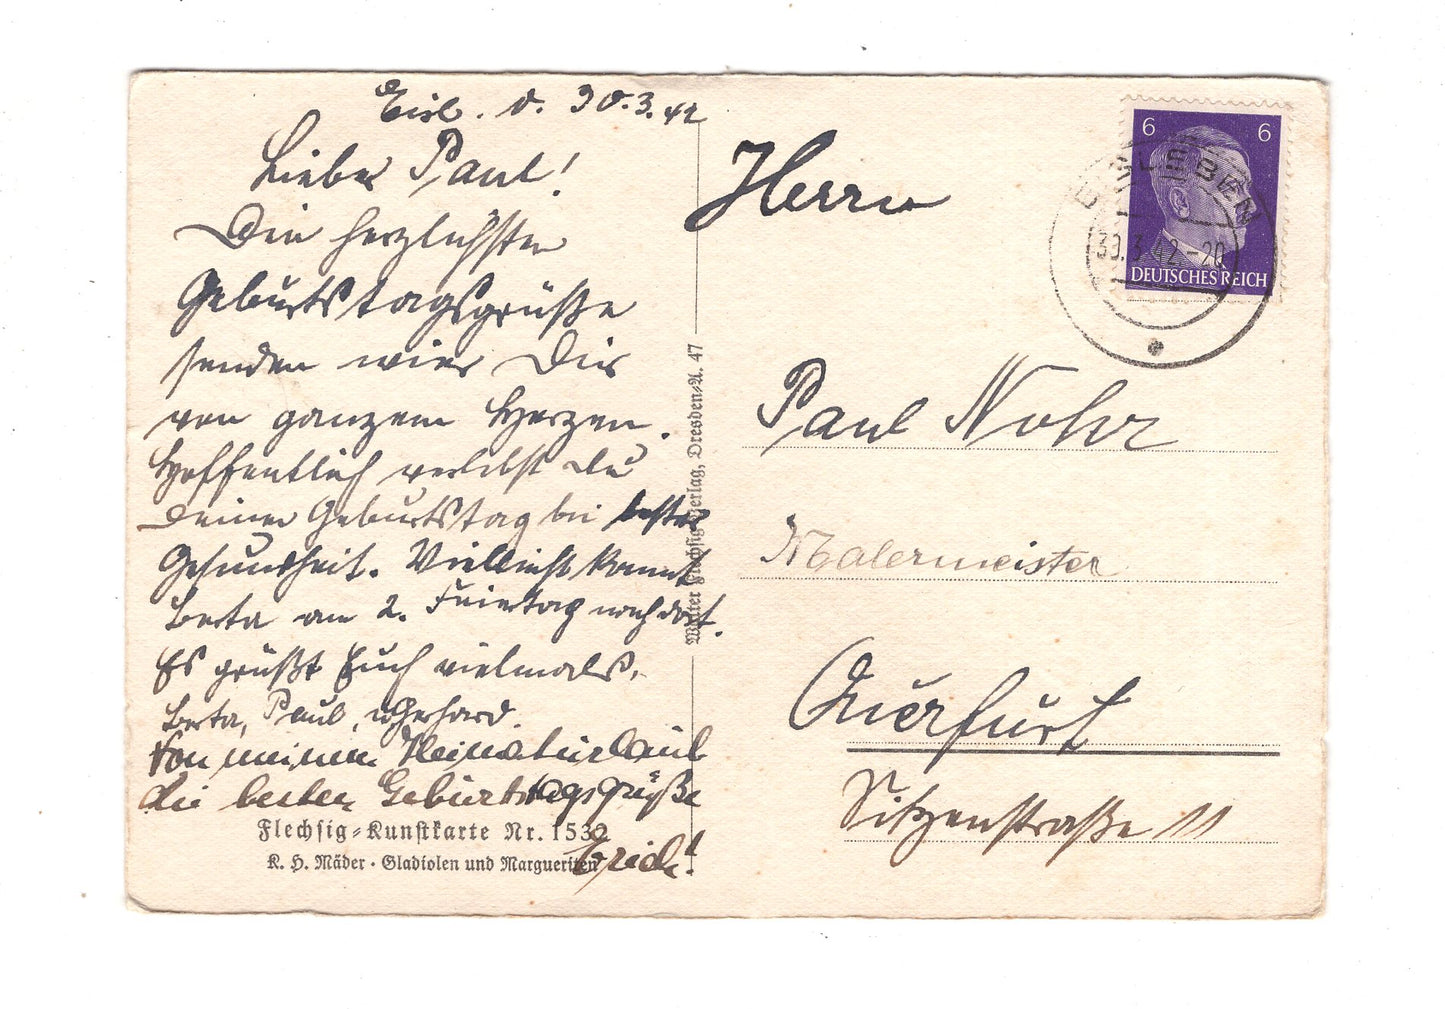 Eisl. d. 30.3.42
Lieber Paul!
Die herzlichsten
Geburtstagsgrüße
senden wir Dir
von ganzem Herzen.
Hoffentlich verlebst Du
Deinen Geburtstag bei bester
Gesundheit. Vielleicht kommt
Berta am 2. Feiertag nach dort.
Es grüßt Euch vielmals,
Berta, Paul, u. Gerhard.
Von meinem Heimaturlaub
die besten Geburtstagsgrüße
Erich!
Flechsig-Kunstkarte Nr. 1532
K. H. Mäder · Gladiolen und Margueriten
Walter Flechsig Verlag, Dresden-A. 47
6 6
DEUTSCHES REICH
EISLEBEN
30.3.42-20
Herrn
Paul Nohr
Malermeister
Querfurt
Nitzenstraße 11